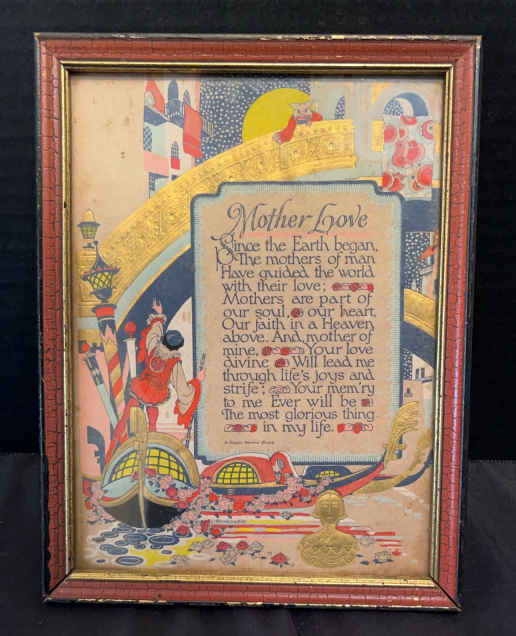 Mother Love
Since the Earth began,
The mothers of man
Have guided the world
with their love;
Mothers are part of
our soul, our heart,
Our faith in a Heaven
above. And, mother of
mine, Your love
divine Will lead me
through life's joys and
strife; Your mem'ry
to me Ever will be
The most glorious thing
in my life.